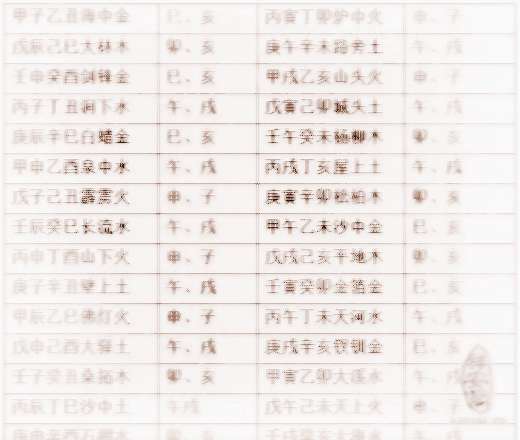 甲子乙丑海中金 巳、亥 丙寅丁卯炉中火 申、子
戊辰己巳大林木 卯、亥 庚午辛未路旁土 午、戌
壬申癸酉剑锋金 巳、亥 甲戌乙亥山头火 申、子
丙子丁丑涧下水 午、戌 戊寅己卯城头土 午、戌
庚辰辛巳白蜡金 巳、亥 壬午癸未杨柳木 卯、亥
甲申乙酉泉中水 午、戌 丙戌丁亥屋上土 午、戌
戊子己丑霹雳火 申、子 庚寅辛卯松柏木 卯、亥
壬辰癸巳长流水 午、戌 甲午乙未沙中金 巳、亥
丙申丁酉山下火 申、子 戊戌己亥平地木 卯、亥
庚子辛丑壁上土 午、戌 壬寅癸卯金箔金 巳、亥
甲辰乙巳佛灯火 申、子 丙午丁未天河水 午、戌
戊申己酉大驿土 午、戌 庚戌辛亥钗钏金 巳、亥
壬子癸丑桑拓木 卯、亥 甲寅乙卯大溪水 午、戌
丙辰丁巳沙中土 午戌 戊午己未天上火 申、子